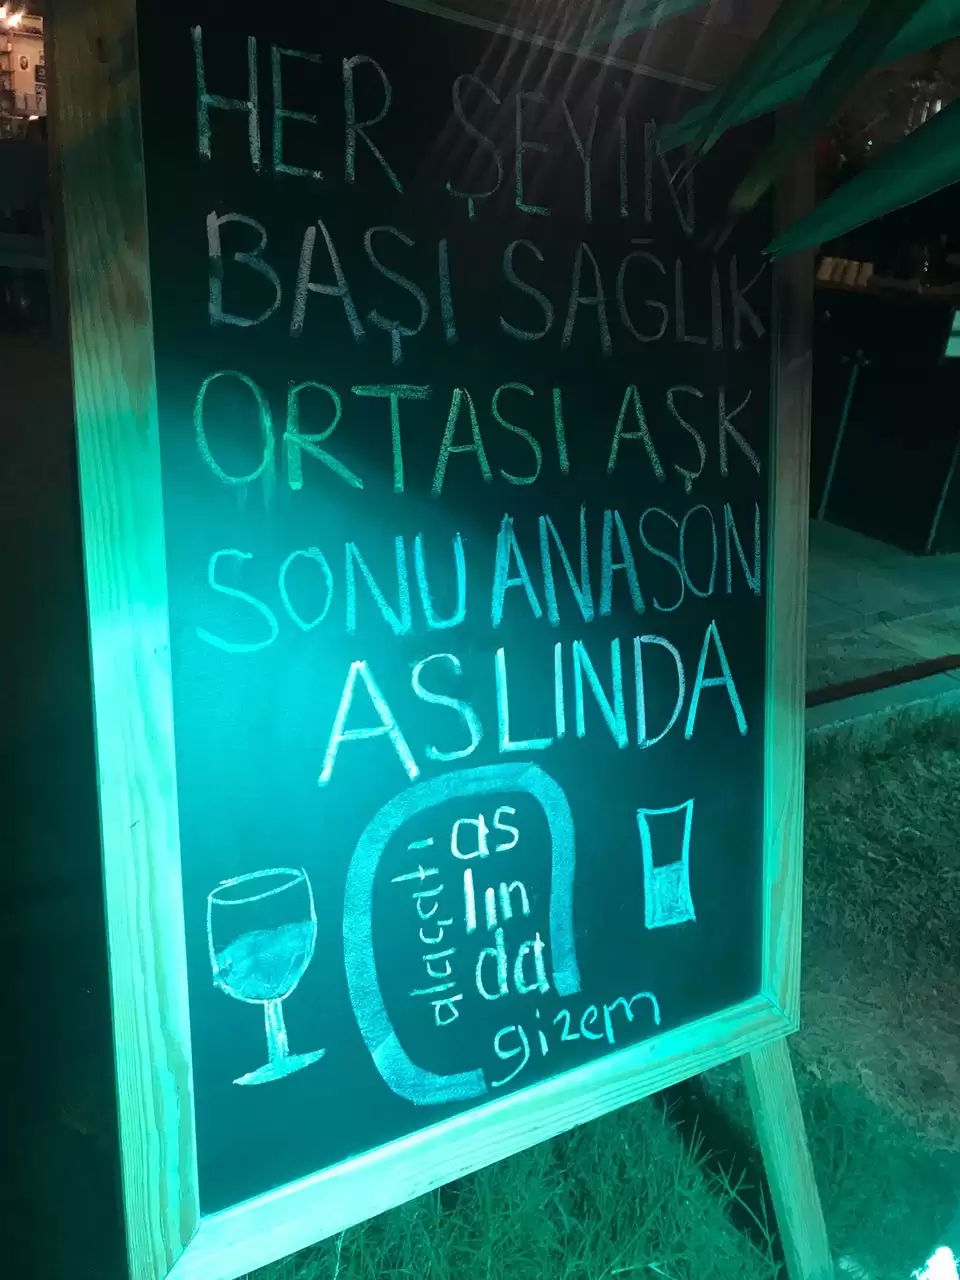 HER ŞEYİN
BAŞI SAĞLIK
ORTASI AŞK
SONU ANASON
ASLINDA
alaçatı
as
lın
da
gizem